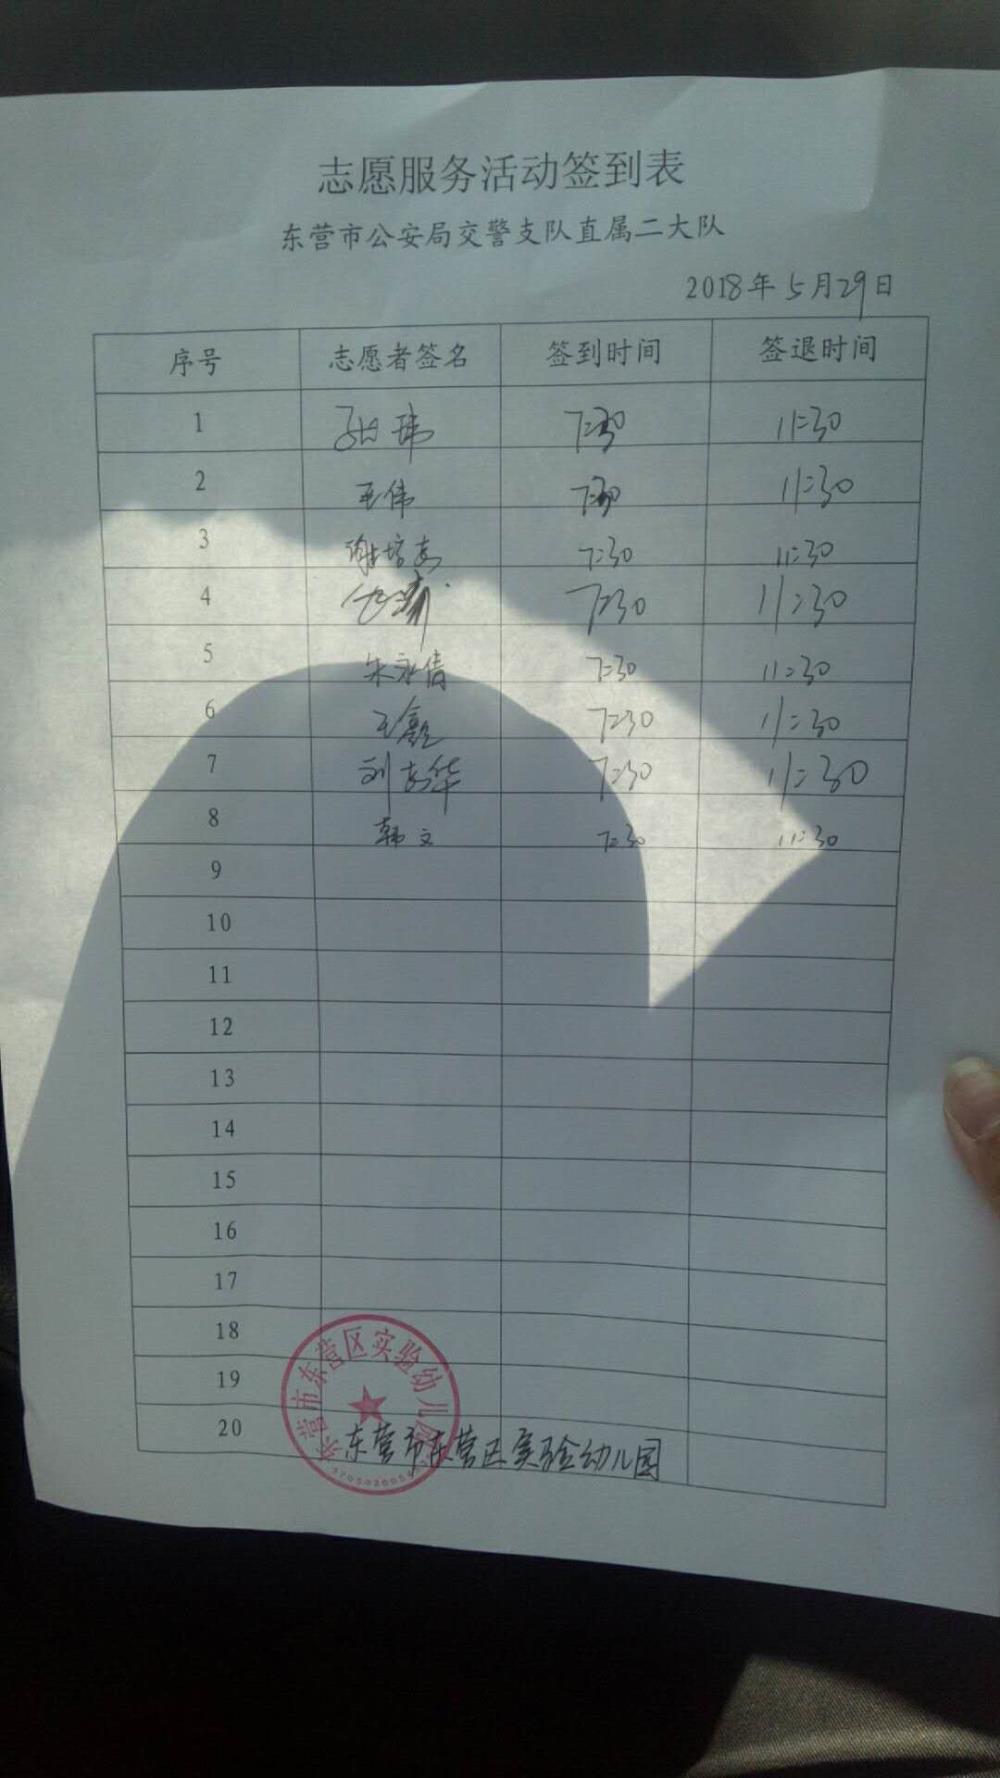 志愿服务活动签到表
东营市公安局交警支队直属二大队
2018年5月29日
序号 志愿者签名 签到时间 签退时间
1 张玮 7:30 11:30
2 王伟 7:30 11:30
3 7:30 11:30
4 7:30 11:30
5 朱永倩 7:30 11:30
6 王 7:30 11:30
7 刘 华 7:30 11:30
8 韩文 7:30 11:30
9
10
11
12
13
14
15
16
17
18
19
20
东营市东营区实验幼儿园
东营市东营区实验幼儿园